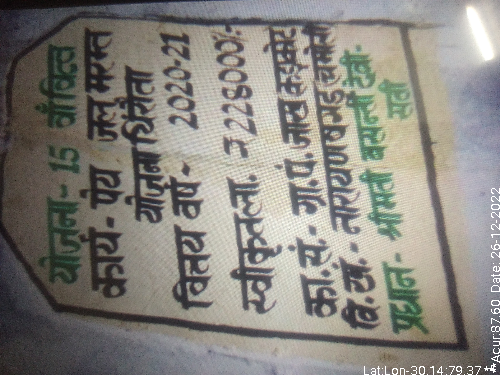 योजना- 15 वां वित्त
कार्य- पेय जल मरम्त
योजना थिरौता
वित्तय वर्ष- 2020-21
स्वीकृतला. रु 228000/-
का. सं.- ग्रा. पं. जाख कड़ाकोट
वि. खं.- नारायणबगड़ चमोली
प्रधान- श्रीमती बसन्ती देवी-
सती
Lat:Lon-30.14:79.37 **Acur:87.60 Date: 26-12-2022